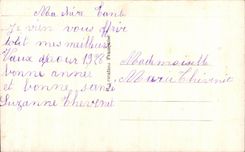 Ma chère Tante
Je vien vous offrir
tout mes meilleurs
Vœux pour 1928
bonne année
et bonne santé
Suzanne Thevenet
Mademoiselle
Marie Thevenet